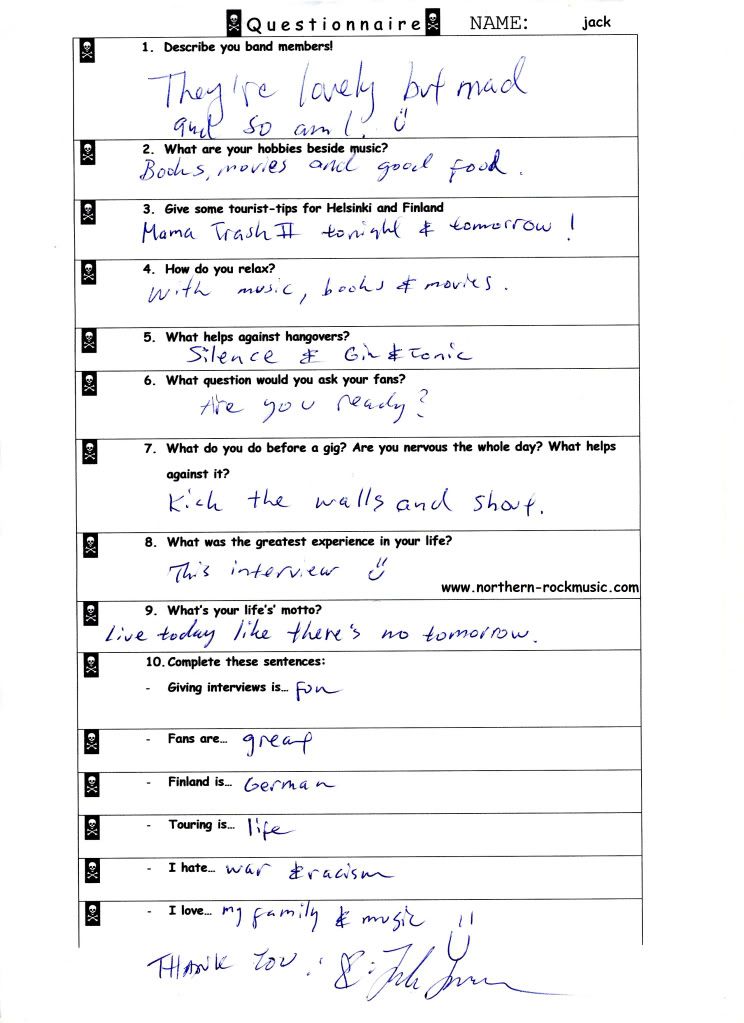 Questionnaire NAME: jack
1. Describe you band members!
They're lovely but mad
and so am I!
2. What are your hobbies beside music?
Books, movies and good food.
3. Give some tourist-tips for Helsinki and Finland
Mama Trash II tonight & tomorrow!
4. How do you relax?
With music, books & movies.
5. What helps against hangovers?
Silence & Gin & Tonic
6. What question would you ask your fans?
Are you ready?
7. What do you do before a gig? Are you nervous the whole day? What helps
against it?
Kick the walls and shout.
8. What was the greatest experience in your life?
This interview
www.northern-rockmusic.com
9. What's your life's' motto?
Live today like there's no tomorrow.
10. Complete these sentences:
- Giving interviews is... fun
- Fans are... great
- Finland is... German
- Touring is... life
- I hate... war & racism
- I love... my family & music
THANK YOU!